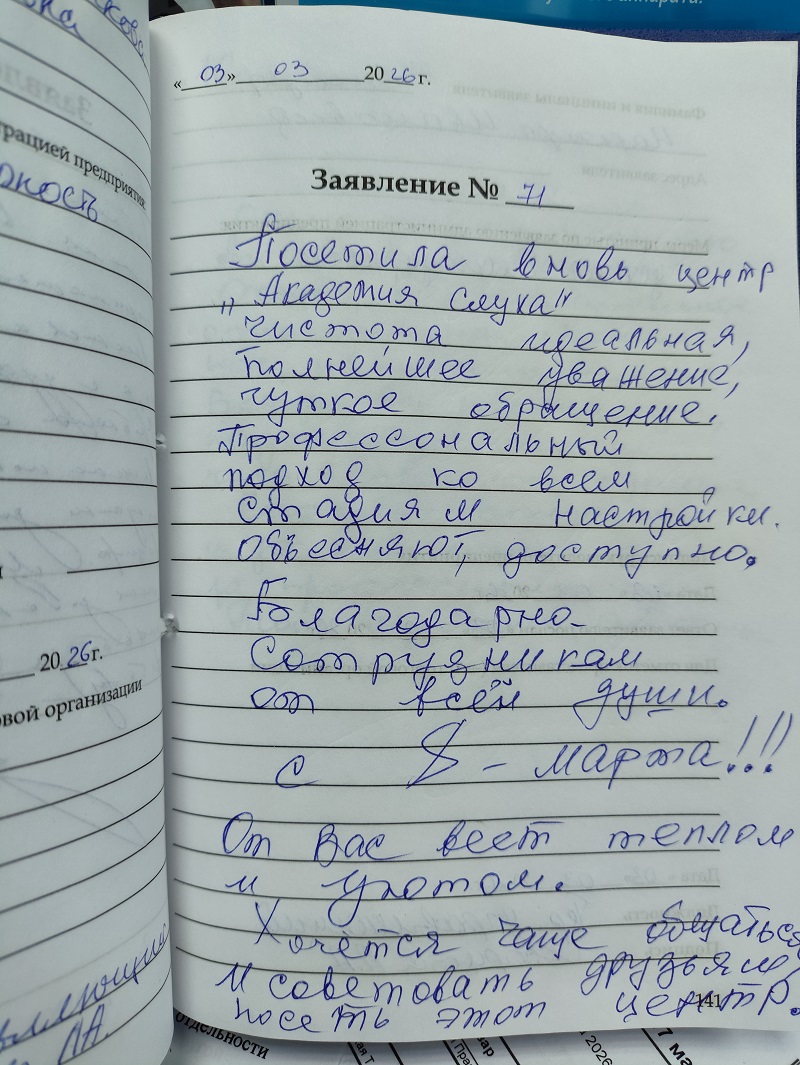 «03» 03 2026 г.
Заявление № 71
Посетила вновь центр
„Академия слуха"
чистота идеальная,
полнейшее уважение,
чуткое обращение.
Профессональный
подход ко всем
стадиям настройки.
объесняют, доступно.
Благодарно-
Сотрудникам
от всей души.
с 8 - марта!!!
От Вас веет теплом
и уютом.
Хочется чаще общаться
и советовать друзьям,
посеть этот центр.
141
рацией предприятия
2026 г.
овой организации
отдельности